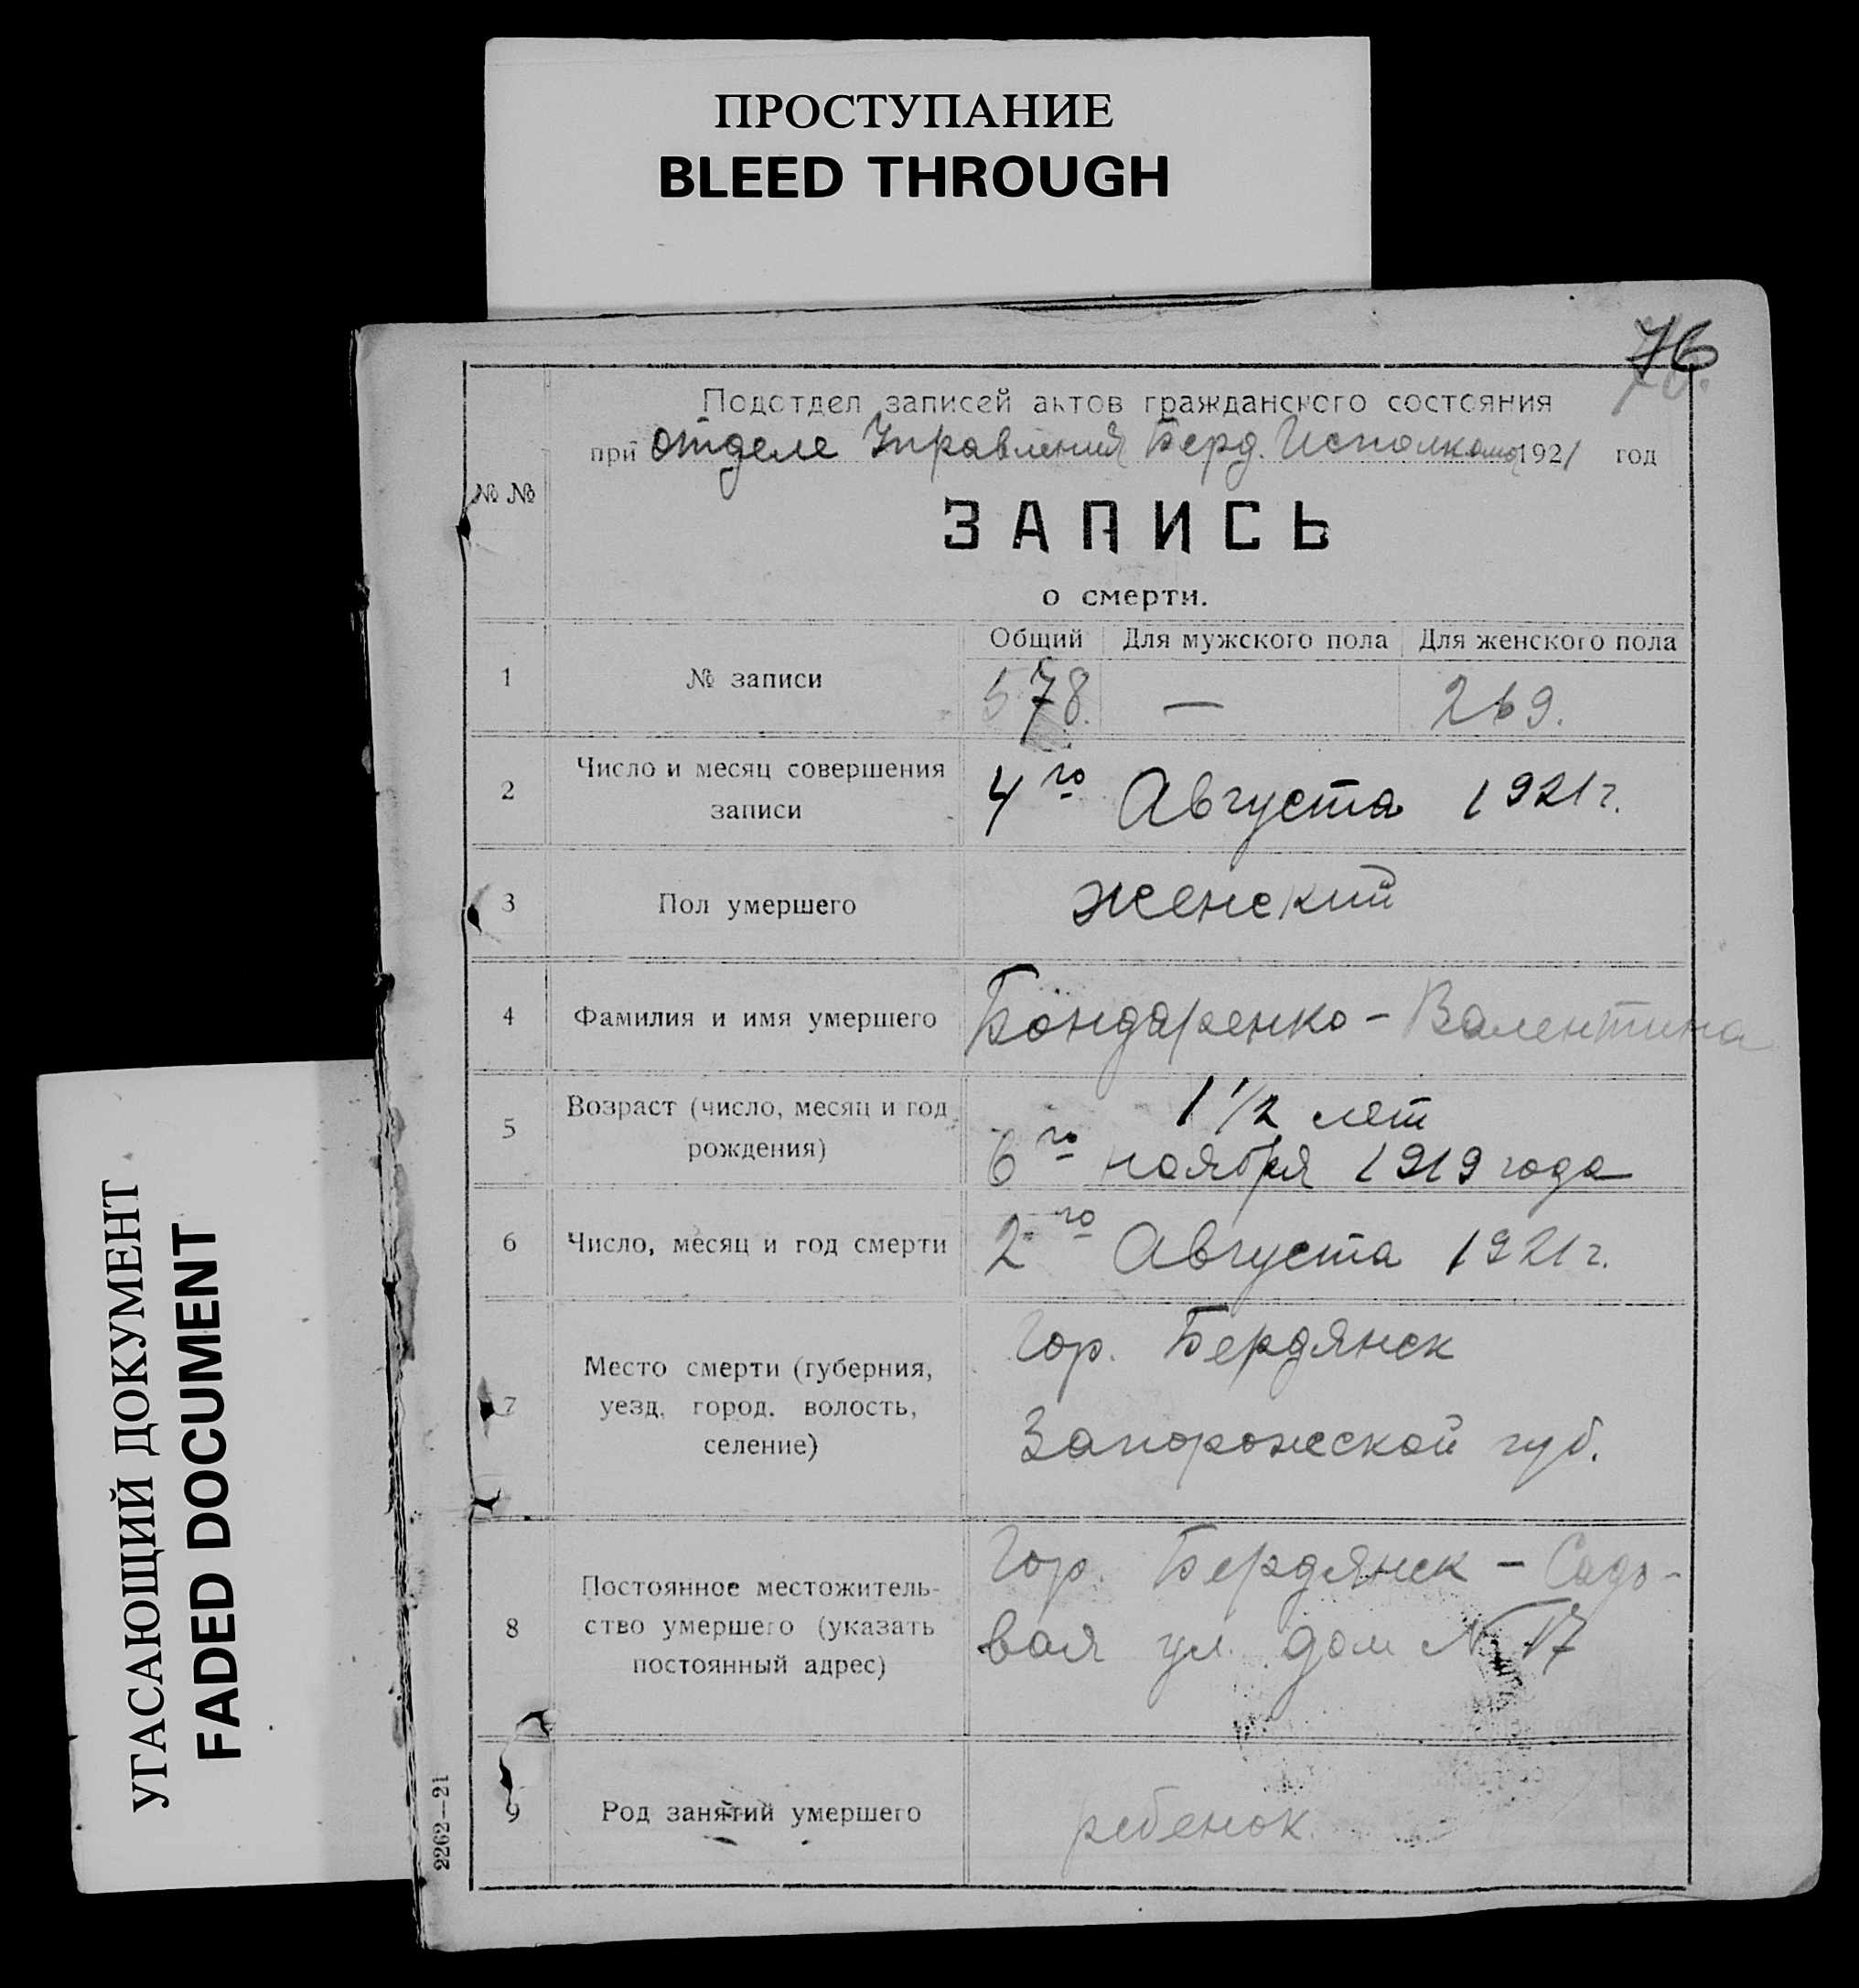 ПРОСТУПАНИЕ
BLEED THROUGH
76
Подотдел записей актов гражданского состояния
при отделе Управления Берд. Исполкома 1921 год
№ №
ЗАПИСЬ
о смерти.
Общий Для мужского пола Для женского пола
1 № записи 578. — 269.
2 Число и месяц совершения
записи
4го Августа 1921 г.
3 Пол умершего женский
4 Фамилия и имя умершего Бондаренко - Валентина
5 Возраст (число, месяц и год
рождения)
1 1/2 лет
6го ноября 1919 года
6 Число, месяц и год смерти 2го Августа 1921 г.
7 Место смерти (губерния,
уезд, город, волость,
селение)
Гор. Бердянск
Запорожской губ.
8 Постоянное местожитель-
ство умершего (указать
постоянный адрес)
Гор. Бердянск - Садо-
вая ул. дом № 17
9 Род занятий умершего ребенок
2262—21
УГАСАЮЩИЙ ДОКУМЕНТ
FADED DOCUMENT